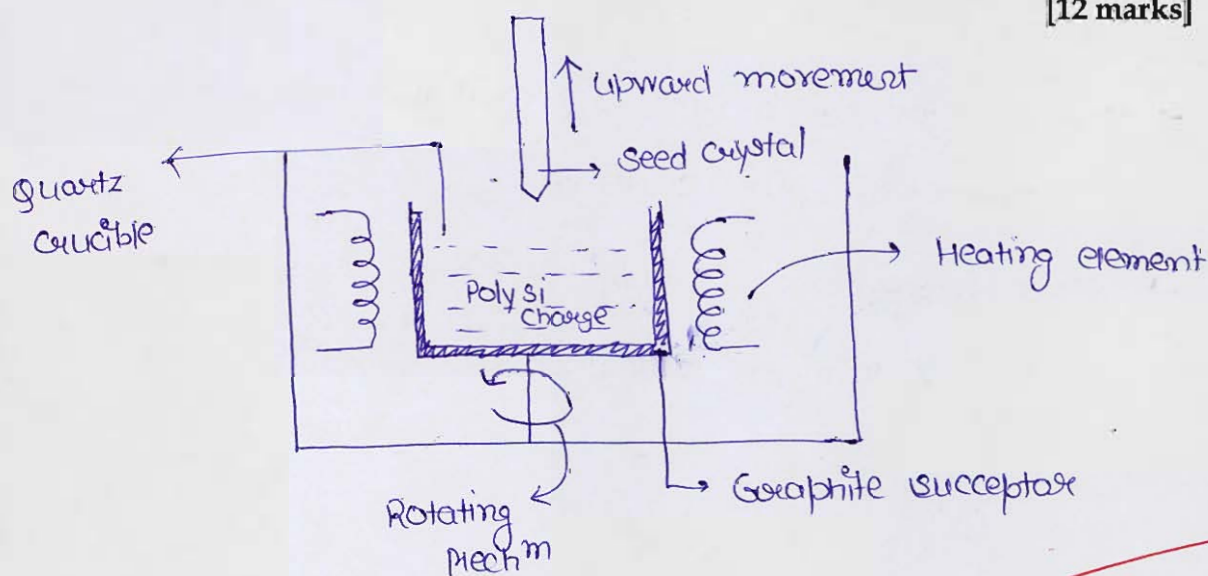 [12 marks]
upward movement
seed crystal
Quartz
crucible
Heating element
Poly si
charge
Graphite succeptor
Rotating
Mech^m